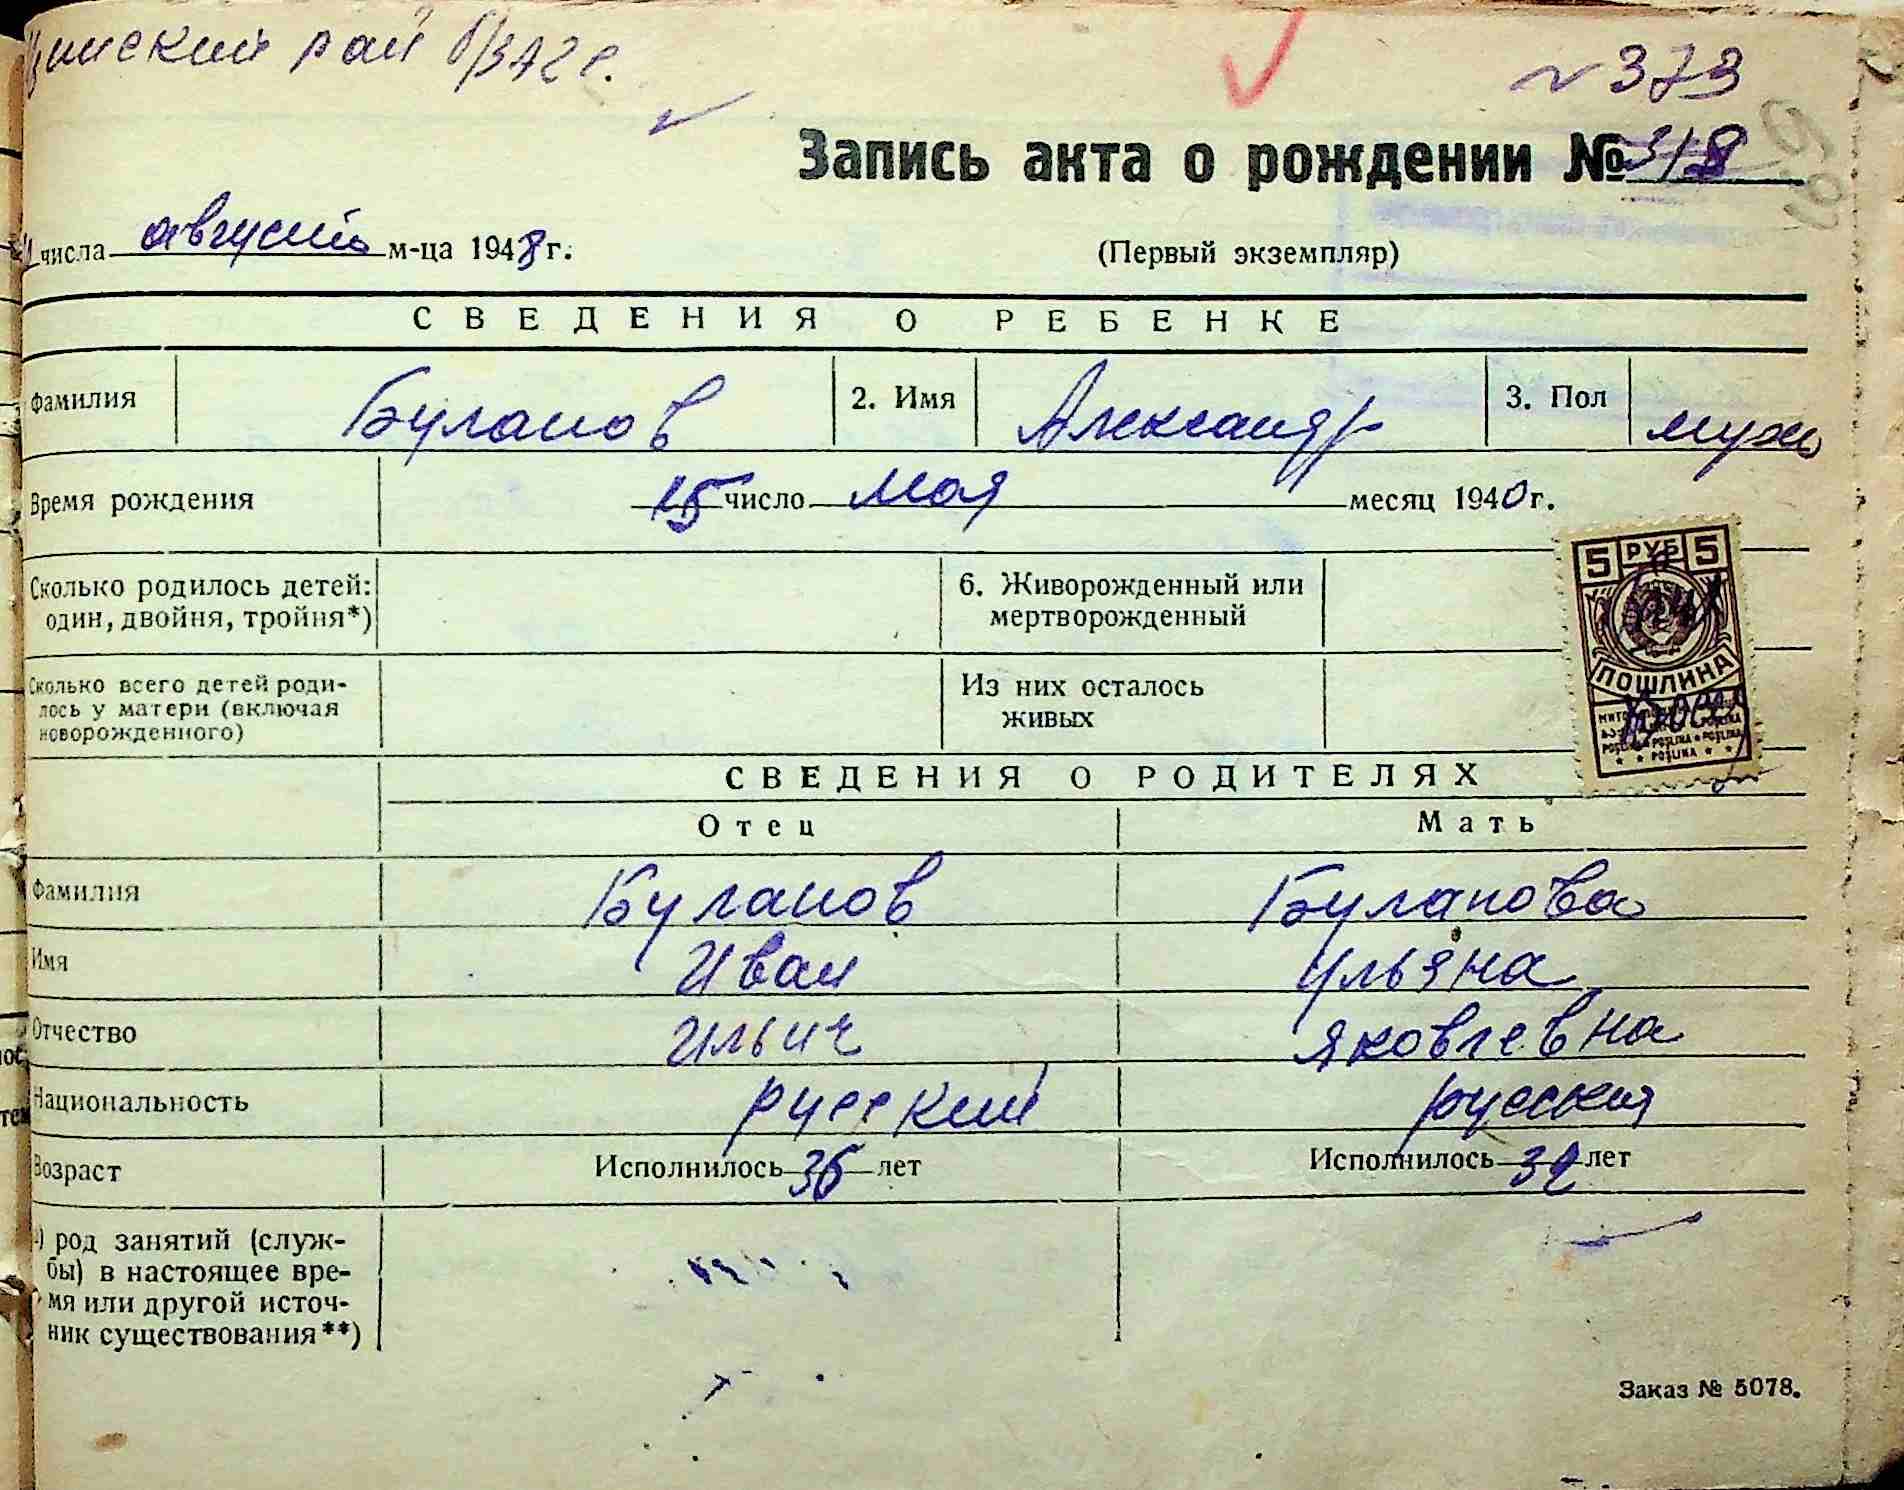 рай
№ 373
Запись акта о рождении № 318
числа август м-ца 1948 г.
(Первый экземпляр)
СВЕДЕНИЯ О РЕБЕНКЕ
Фамилия Буланов 2. Имя Александр 3. Пол муж
Время рождения 15 число мая месяц 1940 г.
5 РУБ 5
Сколько родилось детей: 6. Живорожденный или
один, двойня, тройня*) мертворожденный
ПОШЛИНА
Сколько всего детей роди- Из них осталось
лось у матери (включая живых
новорожденного)
СВЕДЕНИЯ О РОДИТЕЛЯХ
Отец Мать
Фамилия Буланов Буланова
Имя Иван Ульяна
Отчество Ильич Яковлевна
Национальность русский русская
Возраст Исполнилось 36 лет Исполнилось 32 лет
) род занятий (служ-
бы) в настоящее вре-
мя или другой источ-
ник существования**)
Заказ № 5078.